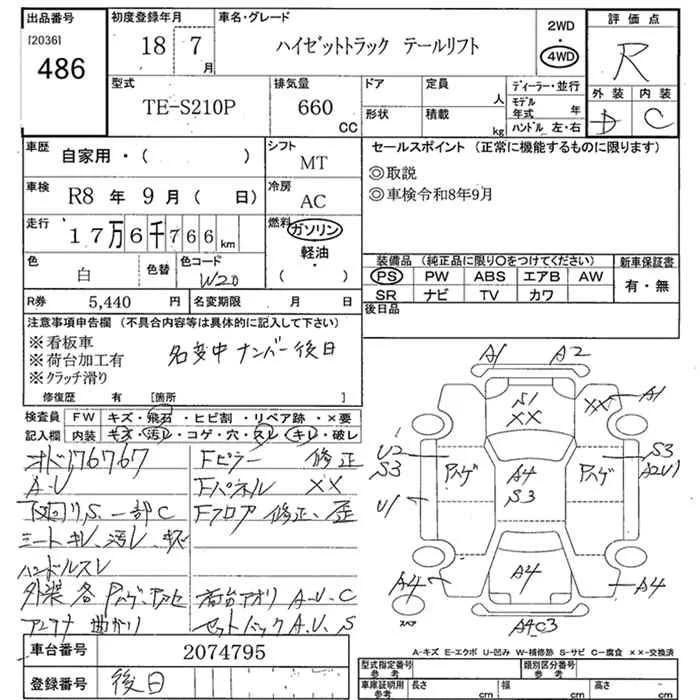 出品番号 初度登録年月 車名・グレード 2WD 評価点
[2036] 18 7月 ハイゼットトラック テールリフト ・ R
486 4WD
型式 排気量 ドア 定員 ディーラー・並行 外装 内装
TE-S210P 660 CC 形状 積載 人 kg モデル年式 年 D C
ハンドル 左・右
車歴 自家用・( ) シフト MT セールスポイント (正常に機能するものに限ります)
◎取説
車検 R8年9月( 日) 冷房 AC ◎車検令和8年9月
走行 17万6千766km 燃料 ガソリン
軽油
・
色 白 色替 色コード W20 装備品 (純正品に限り〇をつけてください) 新車保証書
PS PW ABS エアB AW 有・無
R券 5,440 円 名変期限 月 日 SR ナビ TV カワ
注意事項申告欄 (不具合内容等は具体的に記入して下さい) 後日品
※看板車
※荷台加工有 名変中 ナンバー後日
※クラッチ滑り
修復歴 有 [箇所 ]
検査員 FW キズ・飛石・ヒビ割・リペア跡・×要
記入欄 内装 キズ・汚レ・コゲ・穴・スレ・キレ・破レ
オド176767 Fピラー 修正
A-U Fパネル ××
下回りS、一部C Fフロア 修正、歪
シートキレ、汚レ、キズ
ハンドルスレ
外装 各 荷台アオリ A.U.C
アンテナ 曲がり セットバックA.U、S
A1 A2
S1
×× ×× A1
U2
S3 A4
S3 S3
A2U1
U1
A4 A4 A4
スペア A4C3
A-キズ E-エクボ U-凹み W-補修跡 S-サビ C-腐食 ××-交換済
車台番号 2074795
登録番号 後日
型式指定番号 参考 類別区分番号 参考
車庫証明用 参考 長さ cm 幅 cm 高さ cm